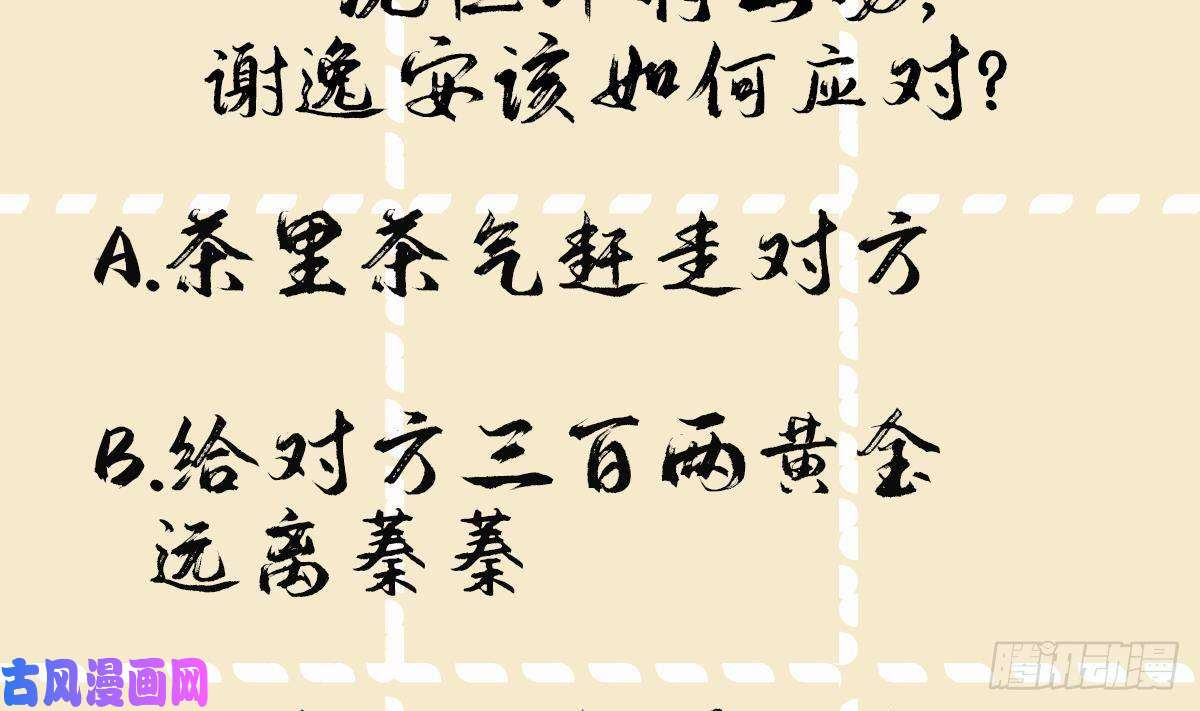 谢逸安该如何应对?
A.茶里茶气赶走对方
B.给对方三百两黄金
远离蓁蓁
古风漫画网
腾讯动漫